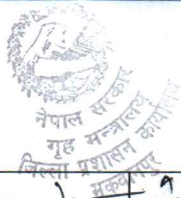 नेपाल सरकार
गृह मन्त्रालय
जिल्ला प्रशासन कार्यालय
मकवानपुर